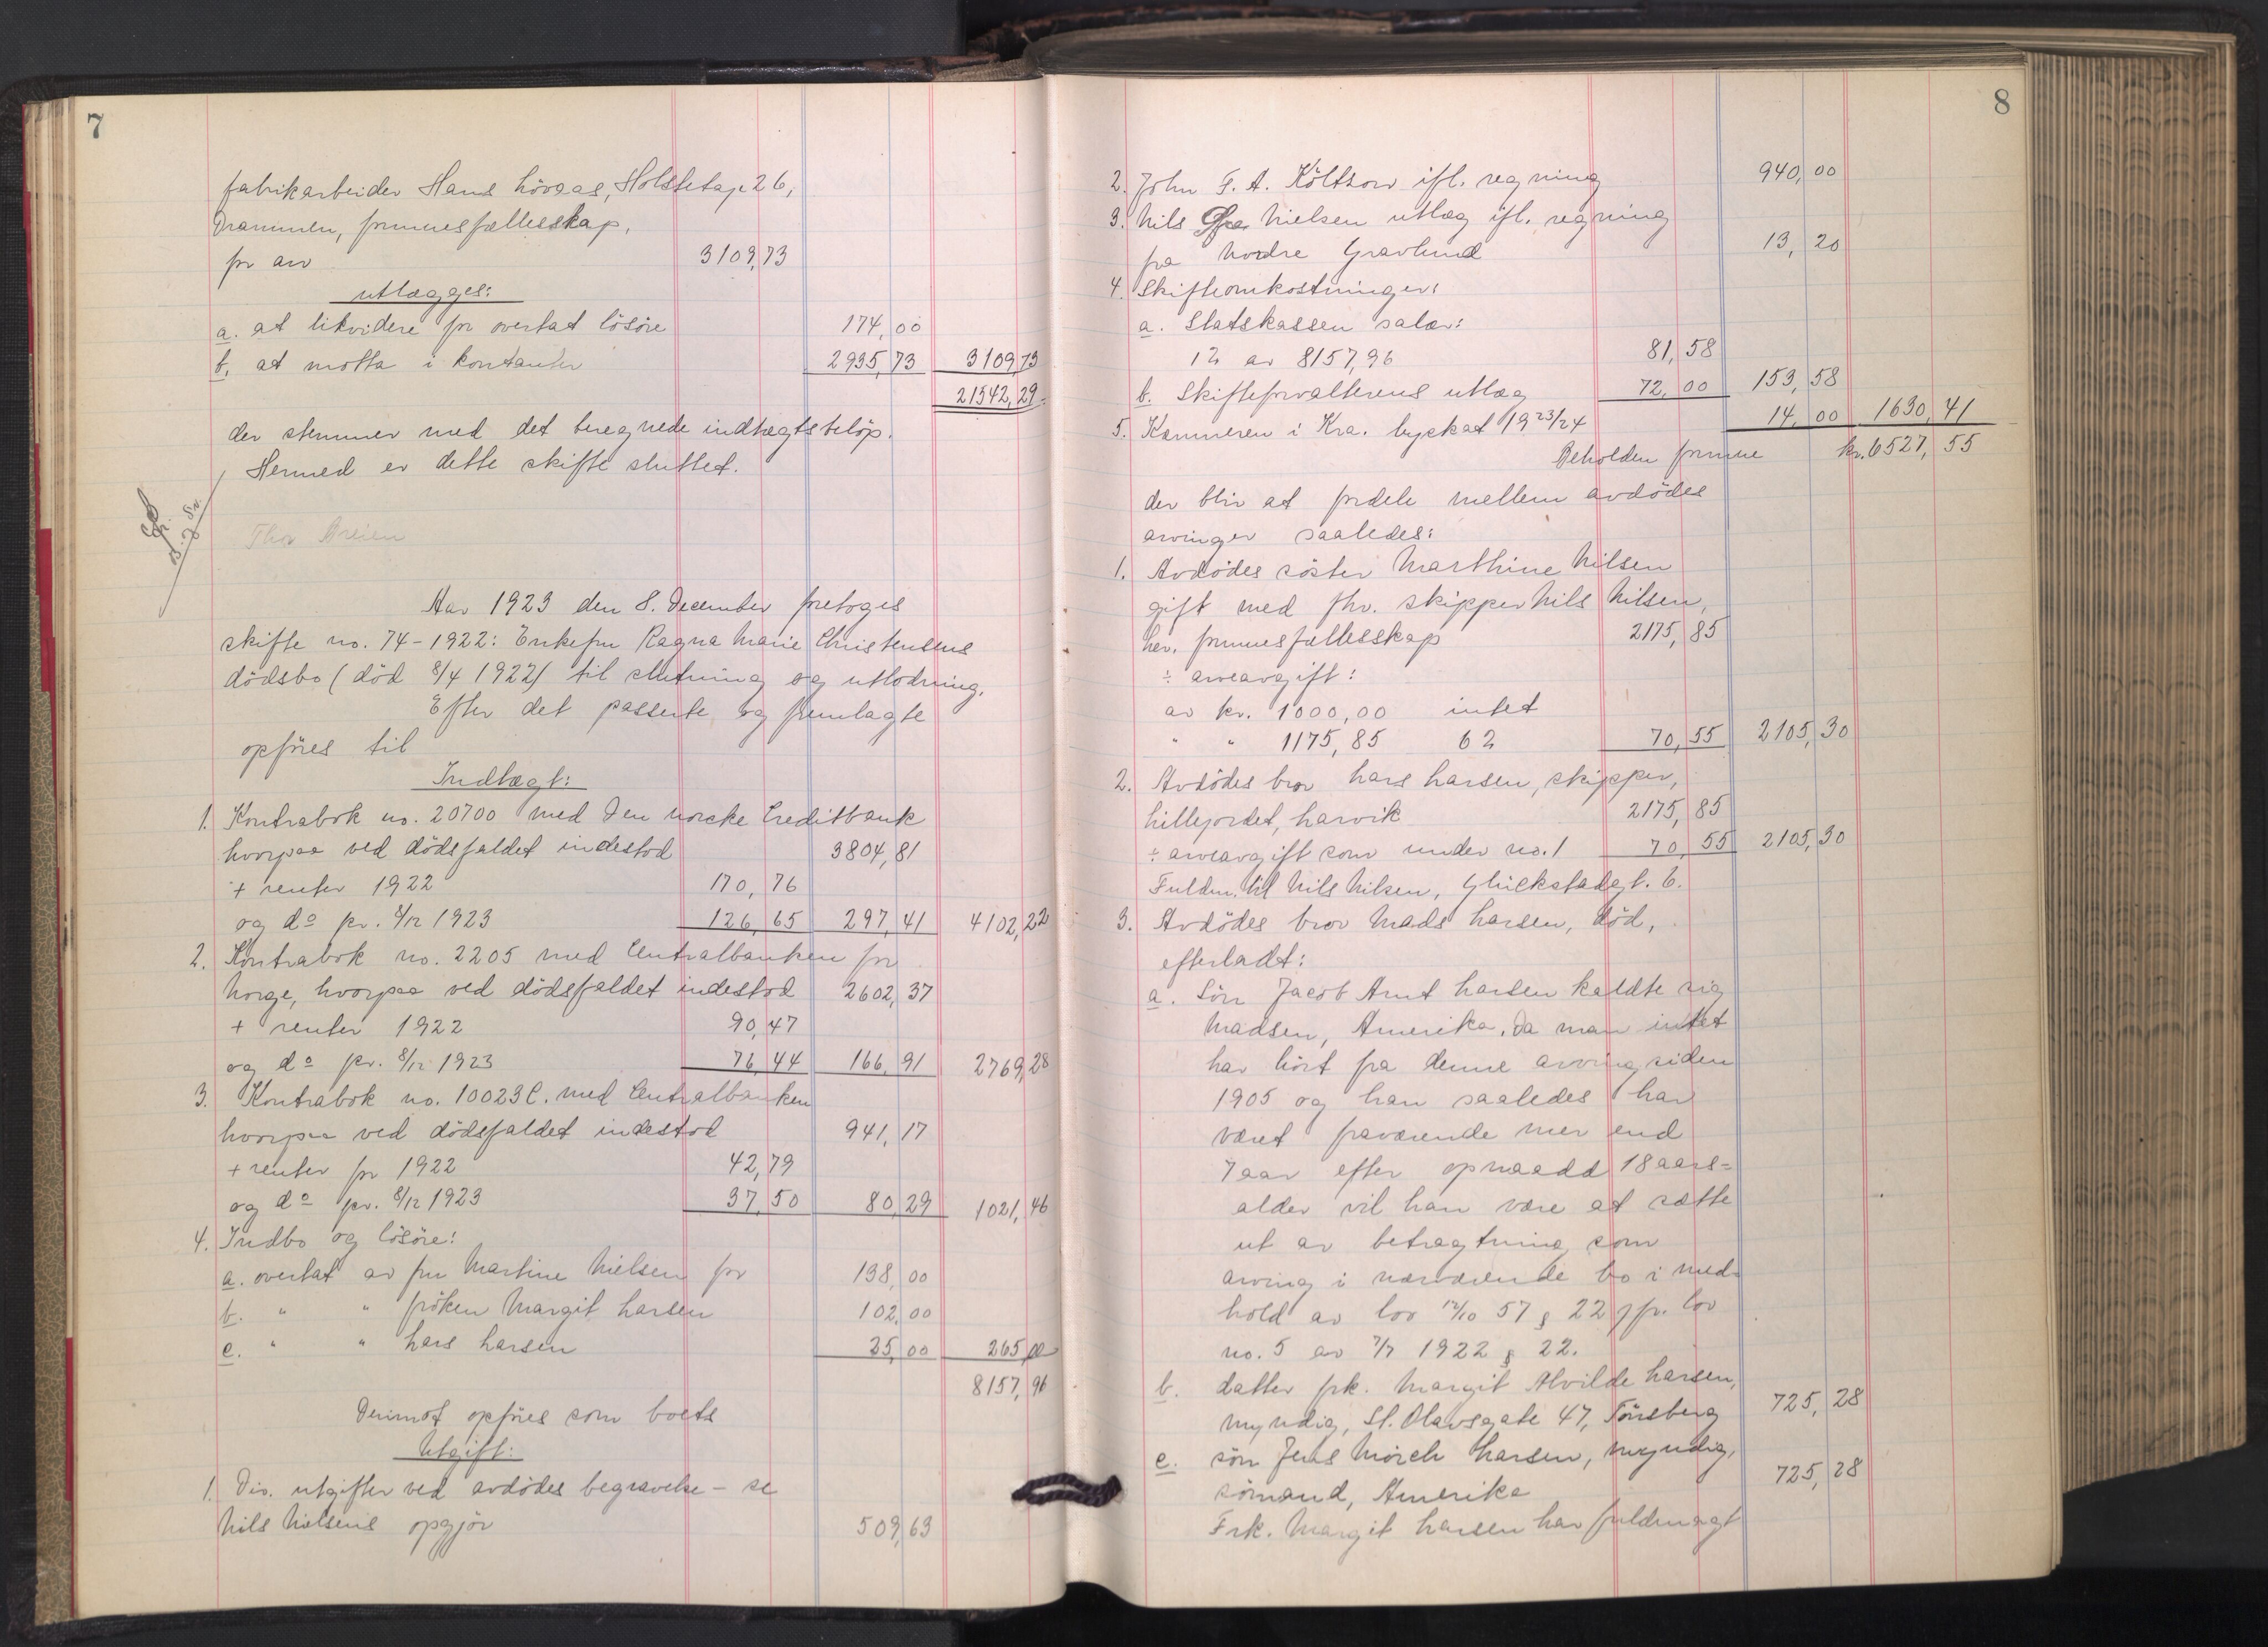 7
fabrikarbeider Hans Lövaas, Holstetsg. 26,
Drammen, formuesfællesskap,
for arv 3109,73
utlægges:
a. at likvidere for overtat lösöre 174,00
b. at motta i kontanter 2935,73 3109,73
21542,29
der stemmer med det beregnede indtægtsbelöp.
Hermed er dette skifte sluttet.
Thor Breien
Aar 1923 den 8. December foretoges
skifte no. 74-1922: Enkefru Ragna Marie Christensens
dödsbo (död 8/4 1922) til slutning og utlodning.
Efter det passerte og fremlagte
opföres til
Indtægt:
1. Kontrabok no. 20700 med Den norske Creditbank
hvorpaa ved dödsfaldet indestod 3804,81
+ renter 1922 170,76
og do pr. 8/12 1923 126,65 297,41 4102,22
2. Kontrabok no. 2205 med Centralbanken for
Norge, hvorpaa ved dödsfaldet indestod 2602,37
+ renter 1922 90,47
og do pr. 8/12 1923 76,44 166,91 2769,28
3. Kontrabok no. 10023C. med Centralbanken
hvorpaa ved dödsfaldet indestod 941,17
+ renter for 1922 42,79
og do pr. 8/12 1923 37,50 80,29 1021,46
4. Indbo og lösöre:
a. overtat av fru Martine Nielsen for 138,00
b. " " fröken Margit Larsen 102,00
c. " " Lars Larsen 25,00 265,00
8157,96
Derimot opföres som boets
Utgift:
1. Div. utgifter ved avdödes begravelse - se
Nils Nielsens opgjör 509,63
8
2. John F. A. Költzow ifl. regning 940,00
3. Nils Nielsen utlæg ifl. regning
fra Nordre Gravlund 13,20
4. Skifteomkostninger:
a. Statskassen salær:
1% av 8157,96 81,58
b. Skifteforvalterens utlæg 72,00 153,58
5. Kemneren i Kra. byskat 1923/24 14,00 1630,41
Beholden formue kr. 6527,55
der blir at fordele mellem avdödes
arvinger saaledes:
1. Avdödes söster Marthine Nilsen
gift med fhv. skipper Nils Nilsen,
her, formuesfællesskap 2175,85
÷ arveavgift:
av kr. 1000,00 intet
" " 1175,85 6% 70,55 2105,30
2. Avdödes bror Lars Larsen, skipper,
Lillejordet, Larvik 2175,85
÷ arveavgift som under no. 1 70,55 2105,30
Fuldm. til Nils Nilsen, Glückstadgt. 6.
3. Avdödes bror Mads Larsen, död,
efterladt:
a. Sön Jacob Arnt Larsen kaldte sig
Madsen, Amerika. Da man intet
har hört fra denne arving siden
1905 og han saaledes har
været fraværende mer end
7 aar efter opnaadd 18 aars-
alder vil han være at sætte
ut av betragtning som
arving i nærværende bo i med-
hold av lov 12/10 57 § 22 jfr. lov
no. 5 av 7/7 1922 § 22.
b. datter frk. Margit Alvilde Larsen,
myndig, St. Olavsgate 47, Tönsberg 725,28
c. sön Jens Mörch Larsen, myndig,
sömand, Amerika 725,28
Frk. Margit Larsen har fuldmagt